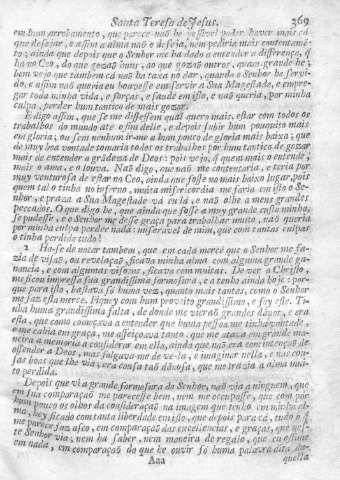 Santa Teresa de Jesus. 369
em bum arrobamento, que parece naõ be possivel poder haver mais cá
que desejar, e assim a alma naõ o deseja, nem pediria mais contentamē-
to; ainda que depois que o Senhor me ha dado a entender a differença, q̃
ha no Ceo, do que gozaõ huns, ao que gozaõ outros, quam grande he;
bem vejo que tambem cá naõ ha taxa no dar, quando o Senhor he servi-
do, e assim naõ queria eu houvesse em servir a Sua Magestade, e empre-
gar toda minha vida, e forças, e saude em isto, e naõ queria, por minha
culpa, perder hum tantico de mais gozar.
E digo assim, que se me dissessem qual quero mais, estar com todos os
trabalhos do mundo até o fim delle, e depois subir hum pouquito mais
em gloria; ou sem nenhum ir-me a hum pouco de gloria mais baixa; que
de muy boa vontade tomaria todos os trabalhos por hum tantico de gozar
mais de entender a grãdeza de Deos: pois vejo, q̃ quem mais o entende,
mais o ama, e o louva. Naõ digo, que naõ me contentaria, e teria por
muy venturosa de estar no Ceo, ainda que fosse no mais baixo lugar, pois
quem tal o tinha no inferno, muita misericordia me faria em isto o Se-
nhor, e praza a Sua Magestade vá eu lá, e naõ olhe a meus grandes
peccados. O que digo he, que ainda que fosse a muy grande custo minha,
se pudesse, e o Senhor me désse graça para trabalhar muito, naõ queria
por minha culpa perder nada: miseravel de mim, que com tantas culpas
o tinha perdido tudo!
2 Ha-se de notar tambem, que em cada mercê que o Senhor me fa-
zia de visaõ, ou revelaçaõ, ficava minha alma com alguma grande ga-
nancia, e com algumas visões, ficava com muitas. De ver a Christo,
me ficou impressa sua grandissima formosura, e a tenho ainda hoje: por-
que para isto, bastava só huma vez, quanto mais tantas, como o Senhor
me faz esta mercê. Fiquey com hum proveito grandissimo, e foy este. Ti-
nha huma grandissima falta, de donde me vieraõ grandes dãnos, e era
esta, que como começava a entender que huma pessoa me tinha vontade,
e me cahia em graça, me affeiçoava tanto, que me atava em grande ma-
neira a memoria a considerar em ella, ainda que naõ era com intençaõ de
offender a Deos, mas folgava-me de ve-la, e imaginar nella, e nas cou-
sas boas que lhe via; era cousa taõ dãnosa, que me trazia a alma mui-
to perdida.
Depois que vi a grande formosura do Senhor, naõ via a ninguem, que
em sua comparaçaõ me parecesse bem, nem me occupasse, que com pôr
hum pouco os olhos da consideraçaõ na imagem que tenho em minha al-
ma, hey ficado com tanta liberdade em isto, que depois para cá, tudo o q̃
me parece faz asco, em comparaçaõ das excellencias, e graças, que nes-
te Senhor via; nem ha saber, nem maneira de regalo, que eu estime
em nada, em comparaçaõ do que he ouvir só huma palavra dita da-
Aaa quella